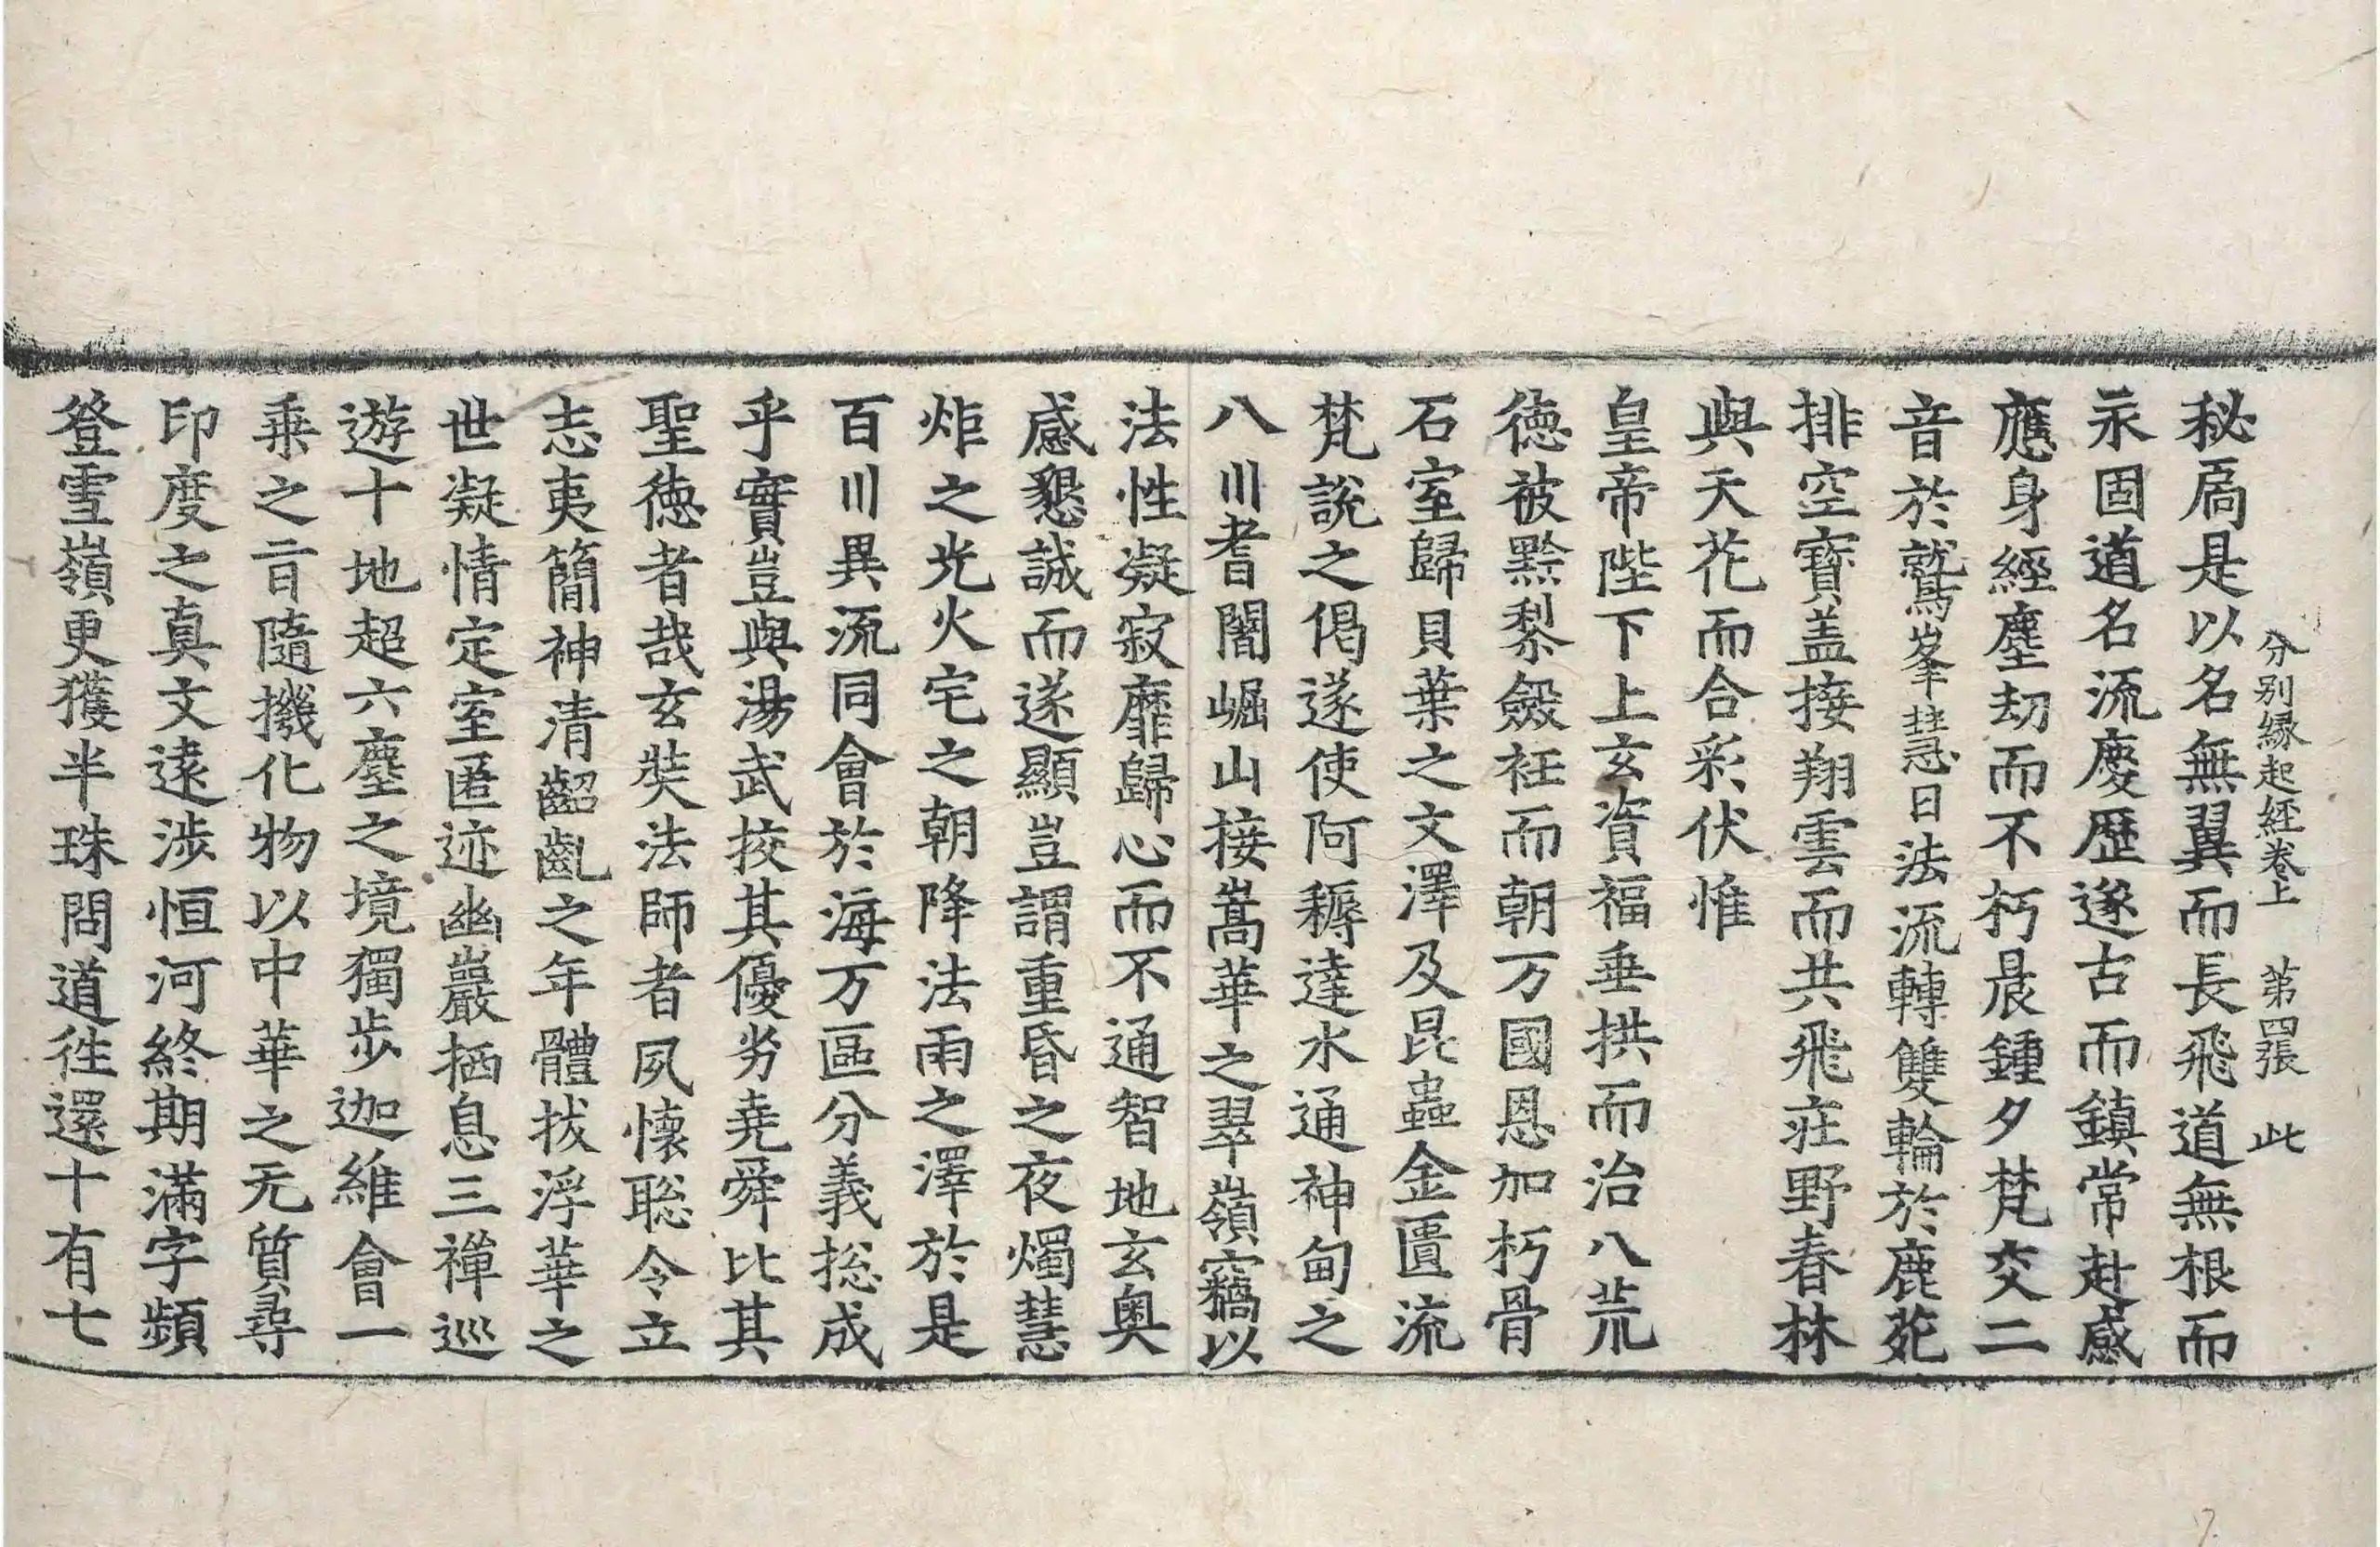 分別縁起經卷上　第四張　此
秘扄是以名無翼而長飛道無根而
永固道名流慶歷遂古而鎮常赴感
應身經塵劫而不朽晨鍾夕梵交二
音於鷲峯慧日法流轉雙輪於鹿苑
排空寶盖接翔雲而共飛莊野春林
與天花而合彩伏惟
皇帝陛下上玄資福垂拱而治八荒
德被黔黎斂衽而朝万國恩加朽骨
石室歸貝葉之文澤及昆蟲金匱流
梵說之偈遂使阿耨達水通神甸之
八川耆闍崛山接嵩華之翠嶺竊以
法性凝寂靡歸心而不通智地玄奥
感懇誠而遂顯豈謂重昏之夜燭慧
炬之光火宅之朝降法雨之澤於是
百川異流同會於海万區分義揔成
乎實豈與湯武挍其優劣堯舜比其
聖德者哉玄奘法師者夙懷聡令立
志夷簡神清齠齔之年體拔浮華之
世凝情定室匿迹幽巖栖息三禪巡
遊十地超六塵之境獨步迦維會一
乘之㫖隨機化物以中華之无質尋
印度之真文遠涉恒河終期滿字頻
登雪嶺更獲半珠問道往還十有七